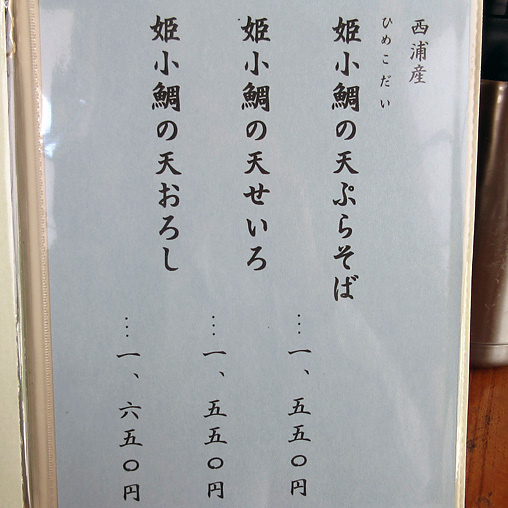 西浦産
ひめこだい
姫小鯛の天ぷらそば
…一、五五〇円
姫小鯛の天せいろ
…一、五五〇円
姫小鯛の天おろし
…一、六五〇円